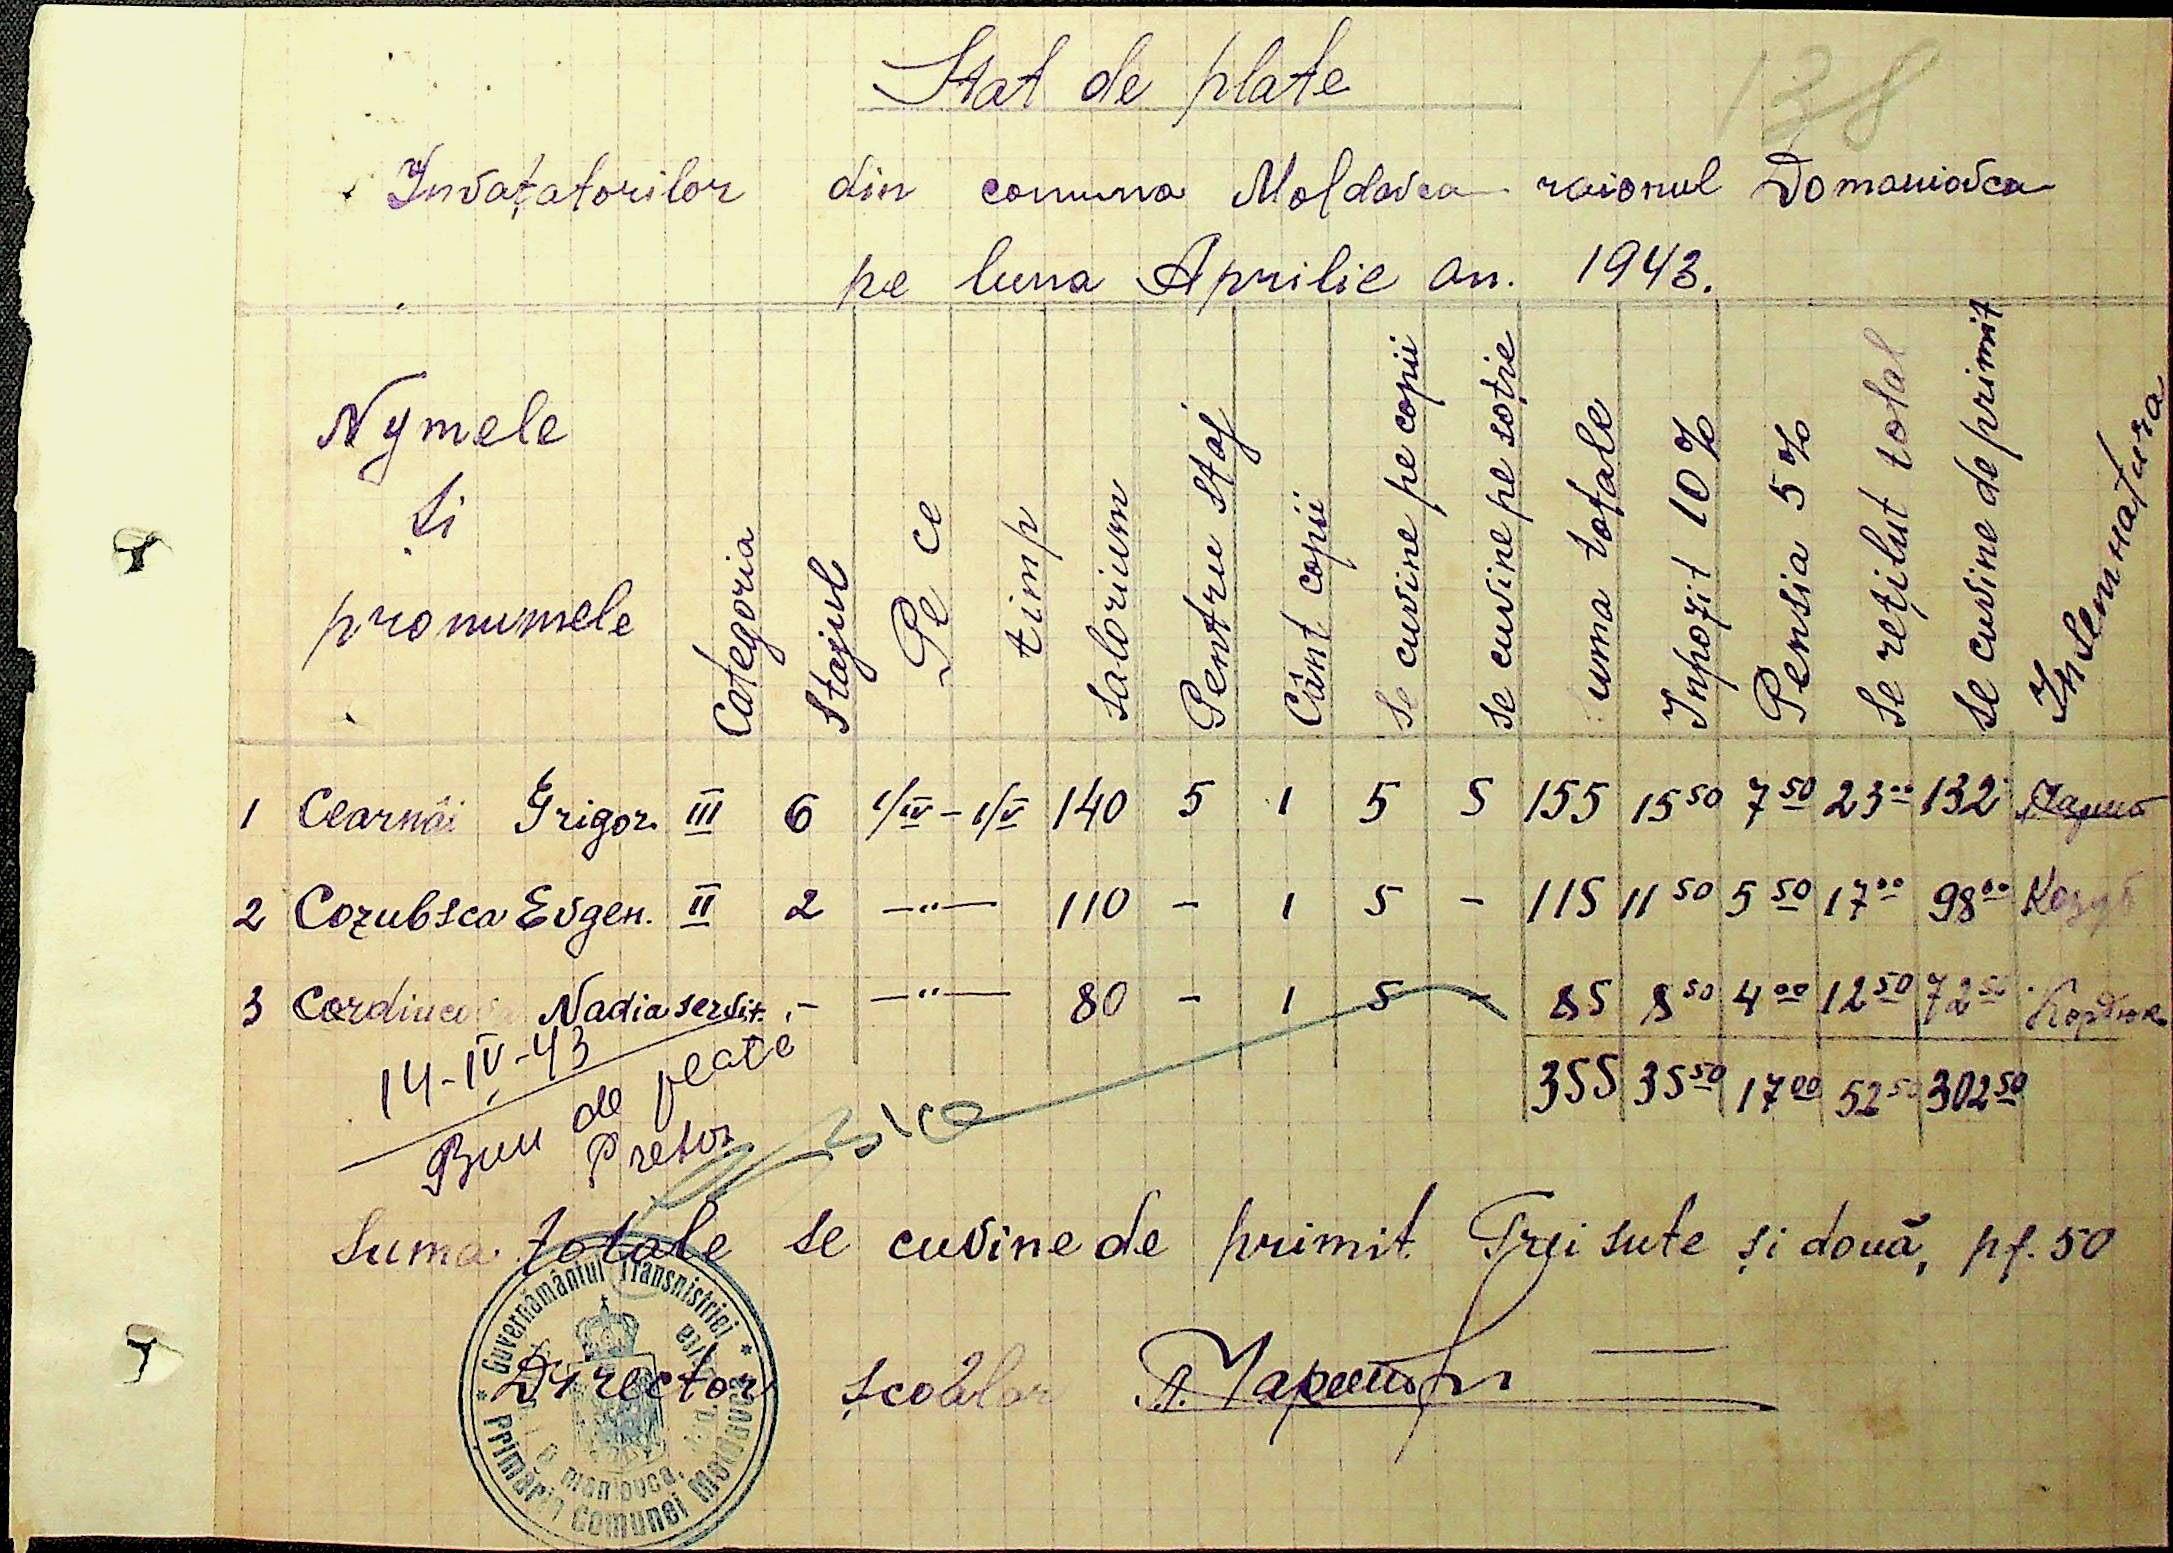 138
Stat de plate
Invațatorilor din comuna Moldavca raionul Domaniovca
pe luna Aprilie an. 1943.
Nymele și pronumele
Categoria
Stajul
Pe ce timp
Salorium
Pentru staj
Cânt copii
Se cuvine pe copii
Se cuvine pe soție
Suma totale
Inpozit 10%
Pensia 5%
Se rețilut total
Se cuvine de primit
Insemnatura
1 Cearnâi Grigor. III 6 1/IV - 1/V 140 5 1 5 5 155 15 50 7 50 23 00 132
2 Cozubsca Evgen. II 2 —"— 110 - 1 5 - 115 11 50 5 50 17 00 98 00 Козуб
3 Cordiucova Nadia servit. - —"— 80 - 1 5 - 85 8 50 4 00 12 50 72 50 Кордюк
355 35 50 17 00 52 50 302 50
14-IV-43
Bun de plate
Pretor
Suma totale se cuvine de primit Trei sute și două, pf. 50
Director școalor
Guvernământul Transnistriei
Primăria Comunei Moldovca